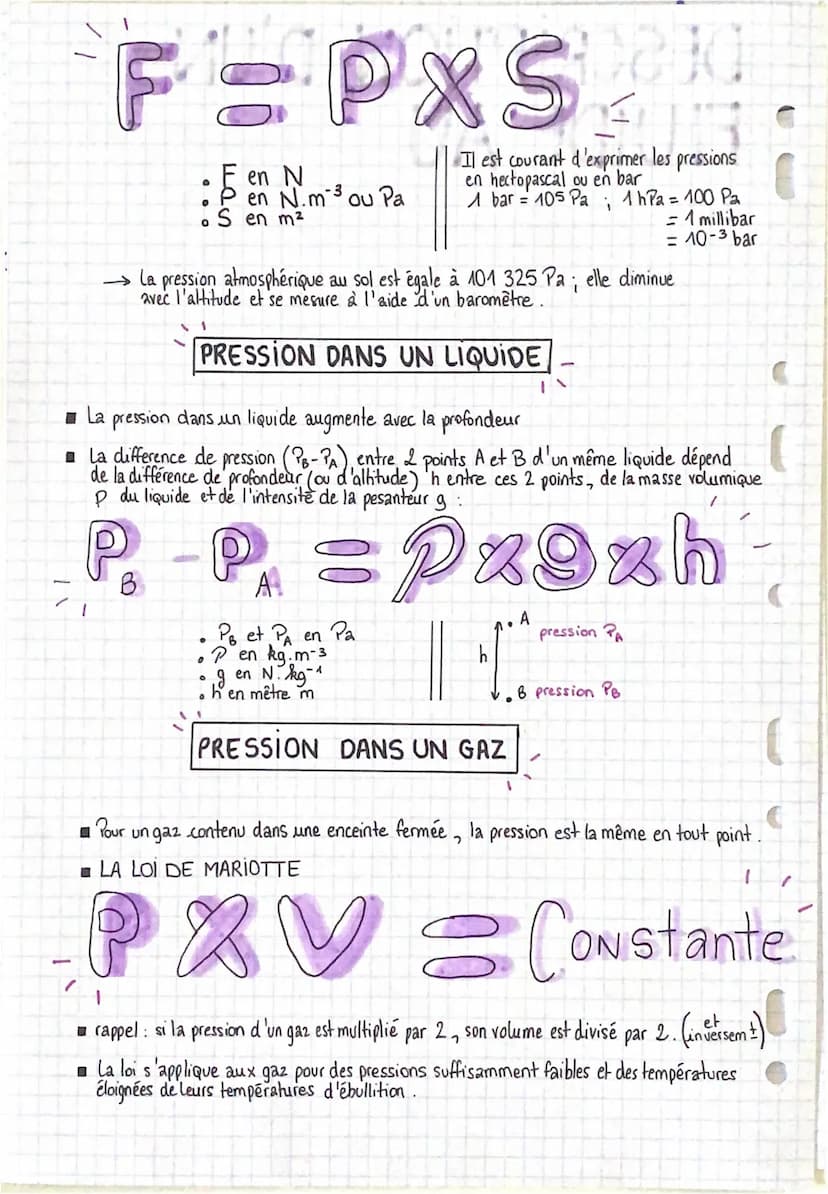 F = P X S
• F en N
• P en N.m⁻³ ou Pa
• S en m²
Il est courant d'exprimer les pressions
en hectopascal ou en bar
1 bar = 105 Pa ; 1 hPa = 100 Pa
= 1 millibar
= 10⁻³ bar
→ La pression atmosphérique au sol est égale à 101 325 Pa ; elle diminue
avec l'altitude et se mesure à l'aide d'un baromêtre.
PRESSION DANS UN LIQUIDE
▪ La pression dans un liquide augmente avec la profondeur
▪ La difference de pression (PB-PA) entre 2 points A et B d'un même liquide dépend
de la différence de profondeur (ou d'altitude) h entre ces 2 points, de la masse volumique
ρ du liquide et de l'intensité de la pesanteur g :
PB - PA = ρ x g x h
• PB et PA en Pa
• ρ en kg.m⁻³
• g en N.kg⁻¹
• h en mêtre m
A
pression PA
h
B pression PB
PRESSION DANS UN GAZ
▪ Pour un gaz contenu dans une enceinte fermée, la pression est la même en tout point.
▪ LA LOI DE MARIOTTE
P X V = Constante
▪ rappel : si la pression d'un gaz est multiplié par 2, son volume est divisé par 2. (et inversemt)
▪ La loi s'applique aux gaz pour des pressions suffisamment faibles et des températures
éloignées de leurs températures d'ébullition.